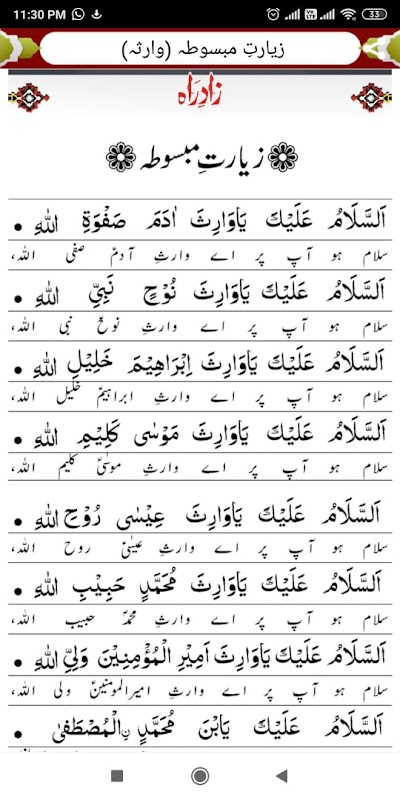 11:30 PM 33
زیارتِ مبسوطہ (وارثہ)
زادِراہ
زیارتِ مبسوطہ
اَلسَّلَامُ عَلَيْكَ يَاوَارِثَ اٰدَمَ صَفْوَةِ اللهِ
سلام ہو آپ پر اے وارثِ آدمؑ صفی اللہ،
اَلسَّلَامُ عَلَيْكَ يَاوَارِثَ نُوْحٍ نَبِيِّ اللهِ
سلام ہو آپ پر اے وارثِ نوحؑ نبی اللہ،
اَلسَّلَامُ عَلَيْكَ يَاوَارِثَ اِبْرَاهِيْمَ خَلِيْلِ اللهِ
سلام ہو آپ پر اے وارثِ ابراہیمؑ خلیل اللہ،
اَلسَّلَامُ عَلَيْكَ يَاوَارِثَ مَوْسٰى كَلِيْمِ اللهِ
سلام ہو آپ پر اے وارثِ موسیٰؑ کلیم اللہ،
اَلسَّلَامُ عَلَيْكَ يَاوَارِثَ عِيْسٰى رُوْحِ اللهِ
سلام ہو آپ پر اے وارثِ عیسیٰؑ روح اللہ،
اَلسَّلَامُ عَلَيْكَ يَاوَارِثَ مُحَمَّدٍ حَبِيْبِ اللهِ
سلام ہو آپ پر اے وارثِ محمدؐ حبیب اللہ،
اَلسَّلَامُ عَلَيْكَ يَاوَارِثَ اَمِيْرِ الْمُؤْمِنِيْنَ وَلِيِّ اللهِ
سلام ہو آپ پر اے وارثِ امیرالمومنینؑ ولی اللہ،
اَلسَّلَامُ عَلَيْكَ يَابْنَ مُحَمَّدٍ نِالْمُصْطَفٰى